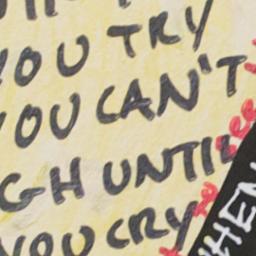 YOU TRY
YOU CAN'T
GH UNTIL
YOU CRY
HEN